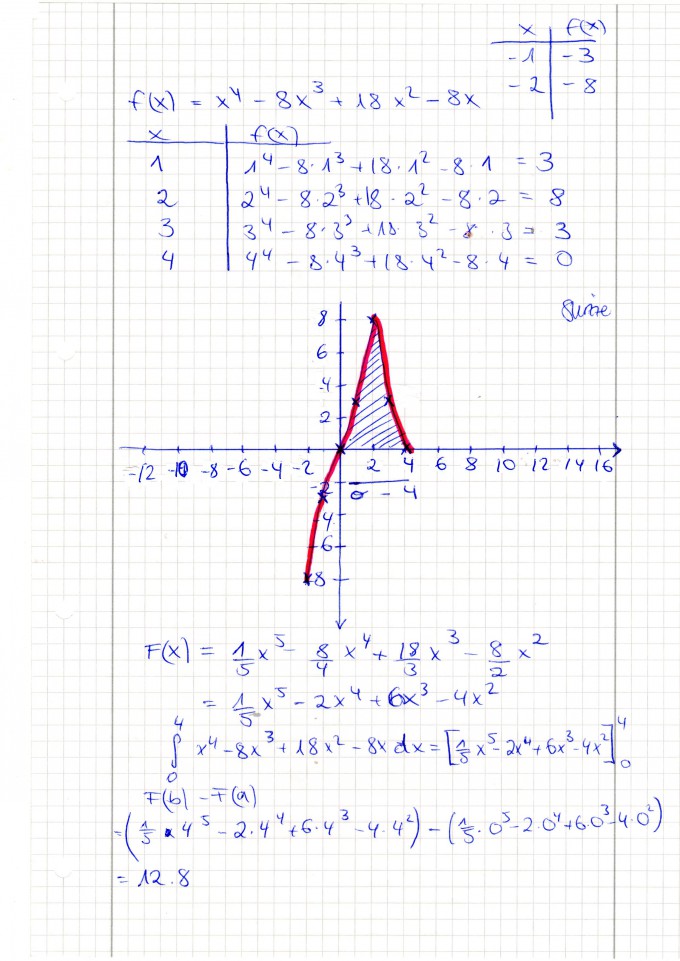 x | f(x)
-1 | -3
-2 | -8
f(x) = x⁴ - 8x³ + 18x² - 8x
x | f(x)
1 | 1⁴ - 8·1³ + 18·1² - 8·1 = 3
2 | 2⁴ - 8·2³ + 18·2² - 8·2 = 8
3 | 3⁴ - 8·3³ + 18·3² - 8·3 = 3
4 | 4⁴ - 8·4³ + 18·4² - 8·4 = 0
Skizze
8
6
4
2
-12 -10 -8 -6 -4 -2 2 4 6 8 10 12 14 16
-2
0 - 4
-4
-6
-8
F(x) = 1/5 x⁵ - 8/4 x⁴ + 18/3 x³ - 8/2 x²
= 1/5 x⁵ - 2x⁴ + 6x³ - 4x²
∫₀⁴ x⁴ - 8x³ + 18x² - 8x dx = [1/5 x⁵ - 2x⁴ + 6x³ - 4x²]₀⁴
F(b) - F(a)
= (1/5 · 4⁵ - 2·4⁴ + 6·4³ - 4·4²) - (1/5 · 0⁵ - 2·0⁴ + 6·0³ - 4·0²)
= 12.8